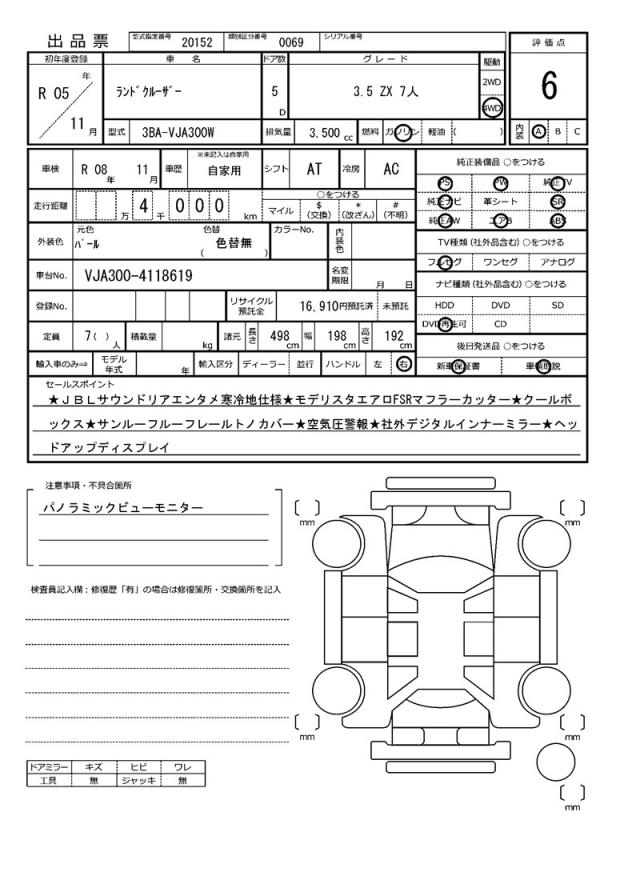 出品票 型式指定番号 20152 類別区分番号 0069 シリアル番号
評価点
初年度登録 車名 ドア数 グレード 駆動
R 05 年 11 月 ﾗﾝﾄﾞｸﾙｰｻﾞｰ 5 D 3.5 ZX 7人 2WD 4WD
6
型式 3BA-VJA300W 排気量 3.500 cc 燃料 ガソリン 軽油 ( )
内装 A B C
車検 R 08 年 11 月 車歴 ※未記入は自家用 自家用 シフト AT 冷房 AC
走行距離 万 4 千 0 0 0 km
○をつける
マイル $ (交換) * (改ざん) # (不明)
外装色 元色 ﾊﾟｰﾙ 色替 ( 色替無 ) カラーNo. 内装色
車台No. VJA300-4118619 名変期限 月 日
登録No. リサイクル預託金 16,910円預託済 未預託
定員 7( )人 積載量 kg 諸元 長さ 498 cm 幅 198 cm 高さ 192 cm
輸入車のみ⇒ モデル年式 年 輸入区分 ディーラー 並行 ハンドル 左 右
純正装備品 ○をつける
PS PW 純正TV
純正ナビ 革シート SR
純正AW エアB ABS
TV種類 (社外品含む) ○をつける
フルセグ ワンセグ アナログ
ナビ種類 (社外品含む) ○をつける
HDD DVD SD
DVD再生可 CD
後日発送品 ○をつける
新車保証書 車輌取説
セールスポイント
★ＪＢＬサウンドリアエンタメ寒冷地仕様★モデリスタエアロFSRマフラーカッター★クールボ
ックス★サンルーフルーフレールトノカバー★空気圧警報★社外デジタルインナーミラー★ヘッ
ドアップディスプレイ
注意事項・不具合箇所
パノラミックビューモニター
検査員記入欄：修復歴「有」の場合は修復箇所・交換箇所を記入
ドアミラー キズ ヒビ ワレ
工具 無 ジャッキ 無
mm
mm
mm
mm
mm